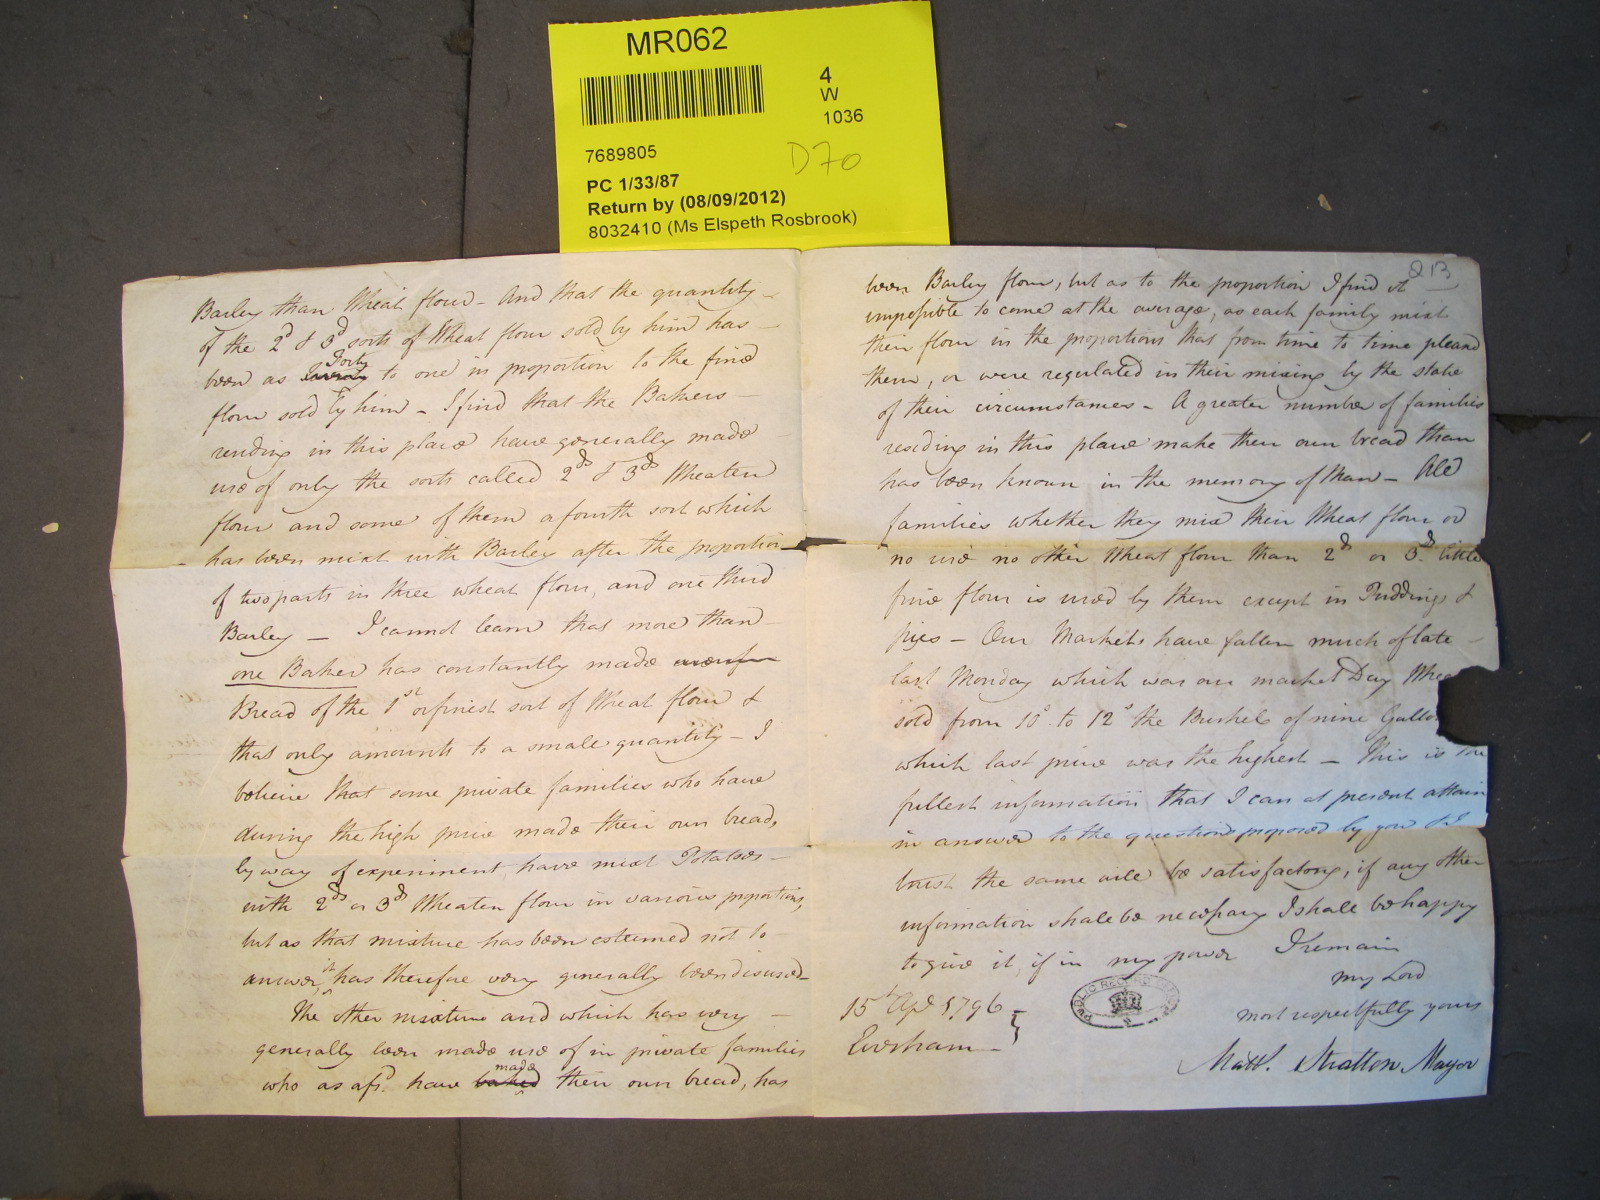 MR062
4
W
1036
7689805
D70
PC 1/33/87
Return by (08/09/2012)
8032410 (Ms Elspeth Rosbrook)
Barley than Wheat flour - And that the quantity
of the 2d & 3d sorts of Wheat flour sold by him has
been as Forty to one in proportion to the fine
flour sold by him - I find that the Bakers
residing in this place have generally made
use of only the sorts called 2ds & 3ds Wheaten
flour and some of them a fourth sort which
has been mixt with Barley after the proportion
of two parts in three wheat flour, and one third
Barley - I cannot learn that more than
one Baker has constantly made
Bread of the 1st or finest sort of Wheat flour &
that only amounts to a small quantity - I
believe that some private families who have
during the high price made their own bread,
by way of experiment have mixt Potatoes -
with 2ds or 3ds Wheaten flour in various proportions,
but as that mixture has been esteemed not to
answer, it has therefore very generally been disused -
The other mixture and which has very -
generally been made use of in private families
who as afsd. have baked made their own bread, has
213
been Barley flour, but as to the proportion I find it
impossible to come at the average, as each family mixt
their flour in the proportions that from time to time pleased
them, or were regulated in their mixing by the state
of their circumstances - A greater number of families
residing in this place make their own bread than
has been known in the memory of Man - All
families whether they mix their Wheat flour or
no use no other Wheat flour than 2ds or 3ds. little
fine flour is used by them except in Puddings &
pies - Our Markets have fallen much of late -
last Monday which was our market Day Whea
sold from 10s. to 12s the Bushel of nine Gallo
which last price was the highest - This is the
fullest information that I can at present attain
in answer to the questions proposed by you & I
trust the same will be satisfactory, if any other
information shall be necessary I shall be happy
to give it, if in my power I remain
my Lord
most respectfully yours
Matt. Stratton Mayor
15th Apl 1796
Evesham
PUBLIC RECORD OFFICE